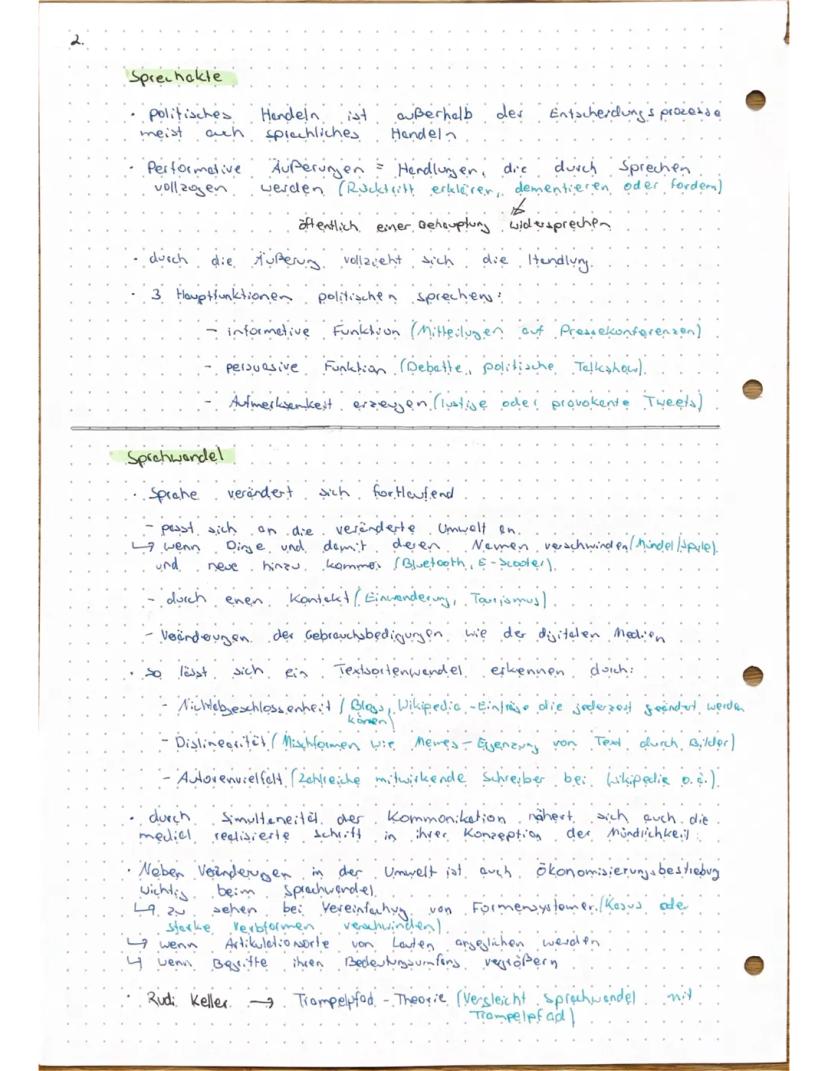 2.
Sprechakte
• politisches Handeln ist außerhalb der Entscheidungsprozesse
meist auch sprachliches Handeln
• Performative Äußerungen = Handlungen, die durch Sprechen
vollzogen werden (Rücktritt erklären, dementieren oder fordern)
öffentlich einer Behauptung widersprechen
• durch die Äußerung vollzieht sich die Handlung
• 3 Hauptfunktionen politischen sprechens:
- informative Funktion (Mitteilugen auf Pressekonferenzen)
- persuasive Funktion (Debatte, politische Talkshow)
- Aufmerksamkeit erzeugen (lustige oder provokante Tweets)
Sprahwandel
• Sprahe verändert sich fortlaufend
- passt sich an die veränderte Umwelt an
↳ wenn Dinge und damit deren Namen verschwinden (Mündel/Spule)
und neue hinzu kommen (Bluetooth, E-Scooter)
- durch enen Kontakt (Einwanderung, Tourismus)
- Veänderungen der Gebrauchsbedigungen wie der digitalen Medien
• so lässt sich ein Textsortenwandel erkennen durch:
- Nichtabgeschlossenheit (Blogs, Wikipedia-Einträge die jederzeit geändert werden
können)
- Dislinearität (Mischformen wie Memes - Egenzung von Text durch Bilder)
- Autorenvielfalt (Zahlreiche mitwirkende Schreiber bei Wikipedia o.ä.)
• durch Simultaneität der Kommonikation nähert sich auch die
medial realisierte Schrift in ihrer Konzeption der Mündlichkeit
• Neben Veänderugen in der Umwelt ist auch ökonomisierungsbestrebug
wichtig beim Sprachwandel
↳ zu sehen bei Vereinfachug von Formensystemen (Kasus ode
starke Verbformen verschwinden)
↳ wenn Artikulationsorte von Lauten angeglichen werden
↳ wenn Begriffe ihren Bedeutungsumfang vegrößern
• Rudi Keller → Trampelpfad-Theorie (Vergleicht Sprachwandel mit
Trampelpfad)